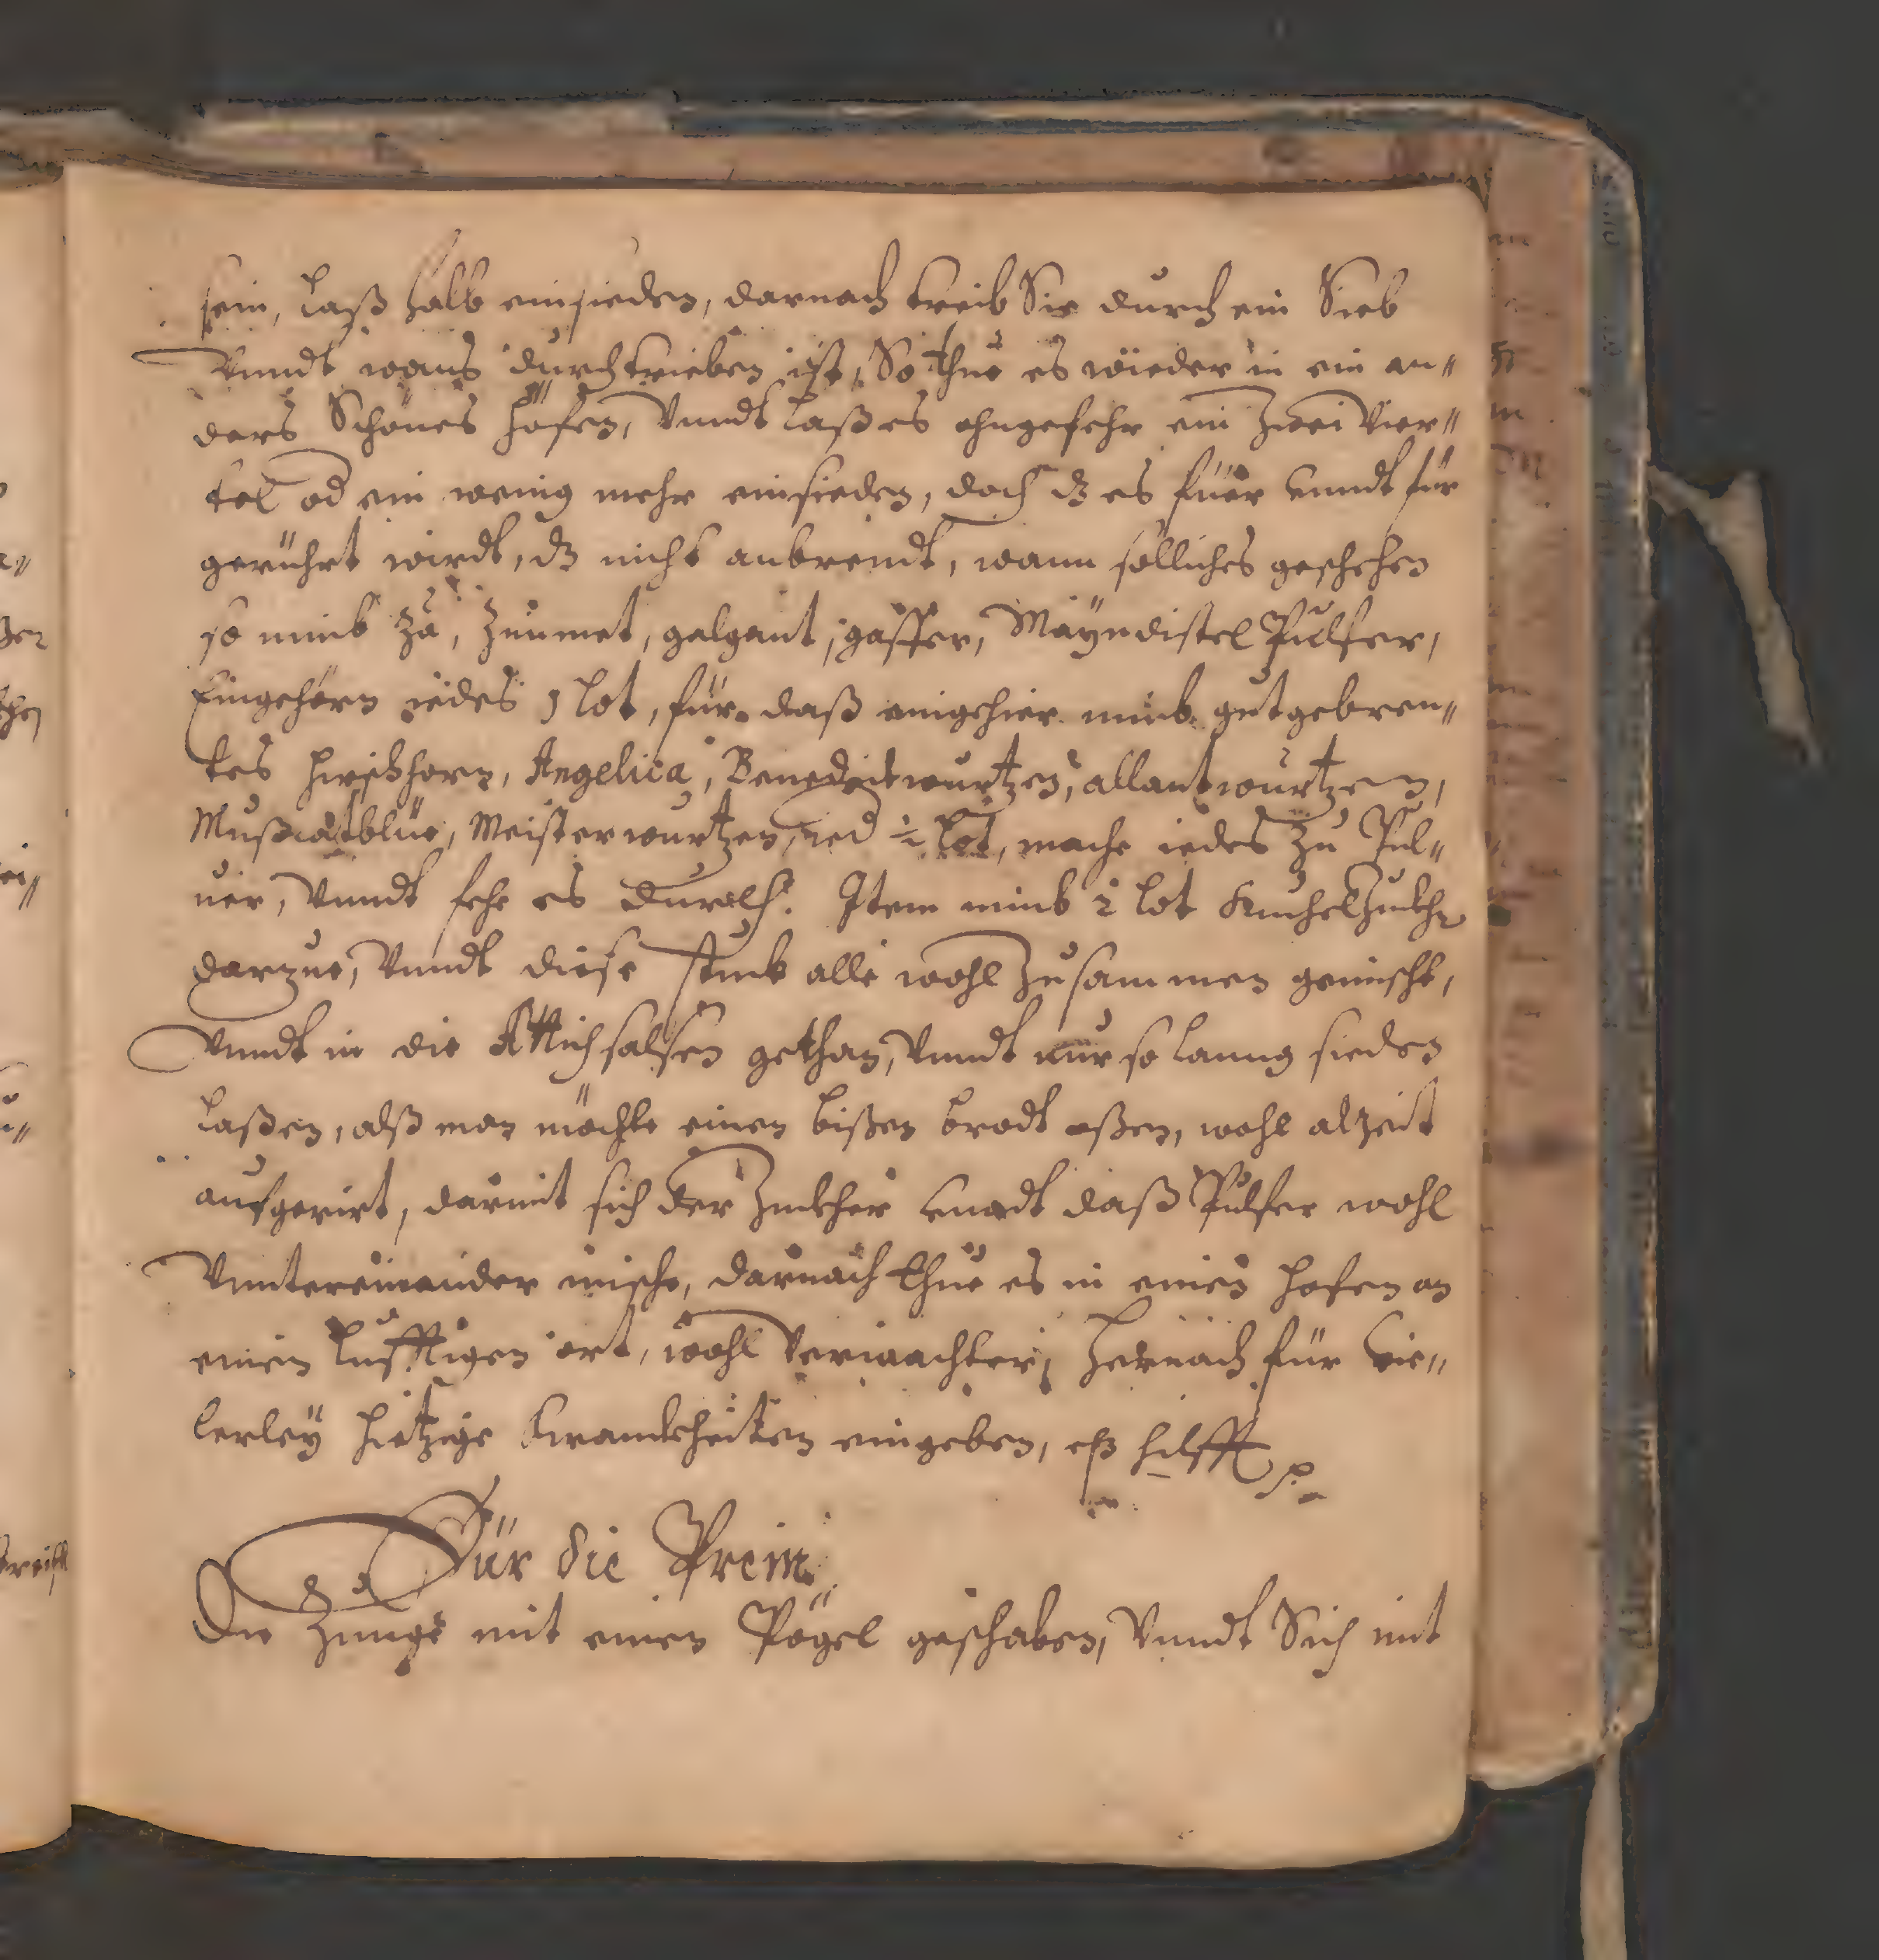 sein, laß halb einsieden, darnach treib Sie durch ein Sieb
Vnndt wans durchtrieben ist, So thue es wieder in ein an„
ders Schönes höfen, Vnndt laß es ohngefehr ein zwei Vier„
tel od ein wenig mehr einsieden, doch dz es für vnndt für
gerührt wirdt, dz nicht anbrendt, wann solliches geschehen
so nimb zu, Zimmet, galgant, gaffer, Mayndistel Pulfer,
Eingehörn iedes 1 lot, für daß eingehier nimb gut gebren„
tes hirschhorn, Angelica, Benedictwurtzen, allantwurtzen,
Mußcatblüe, Meisterwurtzen, ied ½ lot, mache iedes zu Pul„
uer, Vnndt sehe es durch. Item nimb 2 lot Kuchelzuckher
darzue, Vnndt diese stuck alle wohl zusammen gemischt,
Vnndt in die Attichsalsen gethan, Vnndt nur so lanng sieden
laßen, alß man möchte einen bißen brodt eßen, wohl alzeit
aufgerirt, darmit sich der Zuckher vnndt daß Pulfer wohl
Vnntereinander mische, darnach thue es in einen hafen an
einen lufftigen ort, wohl Vermachter, hernach für vie„
lerley hietzige Kranckheiten eingeben, eß hilfft
Für die Preim
Die Zunge mit einen Pögel geschaben, Vnndt Sich mit